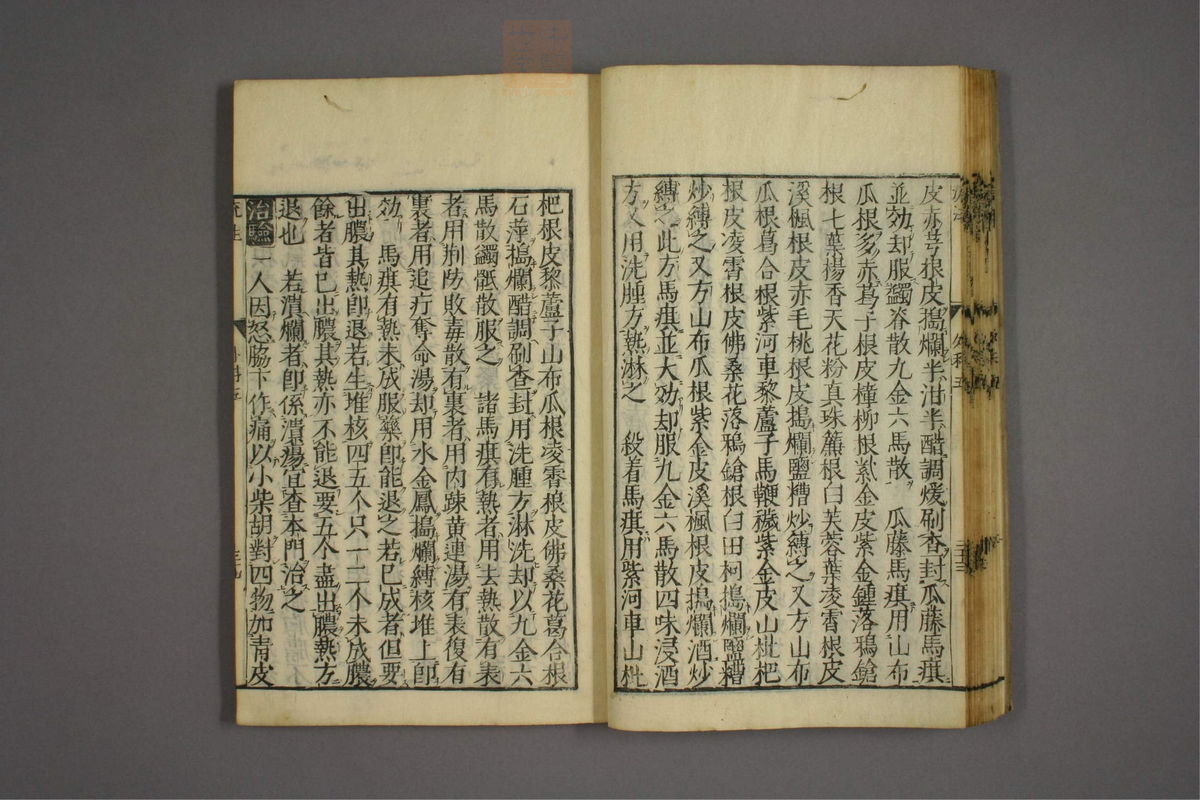 皮赤葛根皮搗爛半泔半酷調煖刷㪯封瓜藤馬瘼
並効却服蠲脊散九金六馬散 瓜藤馬瘼用山布
瓜根多赤葛子根皮樟柳根紫金皮紫金鍾落鴉鎗
根七葉楊香天花粉真珠簾根白芙蓉葉凌霄根皮
溪楓根皮赤毛桃根皮搗爛鹽糟炒縛之又方山布
瓜根葛合根紫河車黎蘆子馬鞭穢紫金皮山枇杷
根皮凌霄根皮佛桑花落鴉鎗根白田柯搗爛鹽糟
炒縛之又方山布瓜根紫金皮溪楓根皮搗爛酒炒
縛之此方馬瘼並大効却服九金六馬散四味浸酒
方又用洗腫方熱淋之 殺着馬瘼用紫河車山枇
杷根皮黎蘆子山布瓜根凌霄根皮佛桑花葛合根
石萍搗爛醋調刷查封用洗腫方淋洗却以九金六
馬散蠲骶散服之 諸馬瘼有熱者用去熱散有表
者用荆防敗毒散有裏者用内踈黄連湯有表復有
裏者用追疔奪命湯却用水金鳳搗爛縛核堆上即
効 馬瘼有熱未成服藥即能退之若已成者但要
出膿其熱即退若生堆核四五个只一二个未成膿
餘者皆已出膿其熱亦不能退要五个盡出膿熱方
退也 若潰爛者即係潰瘍宜查本門治之
治驗 一人因怒脇下作痛以小柴胡對四物加青皮